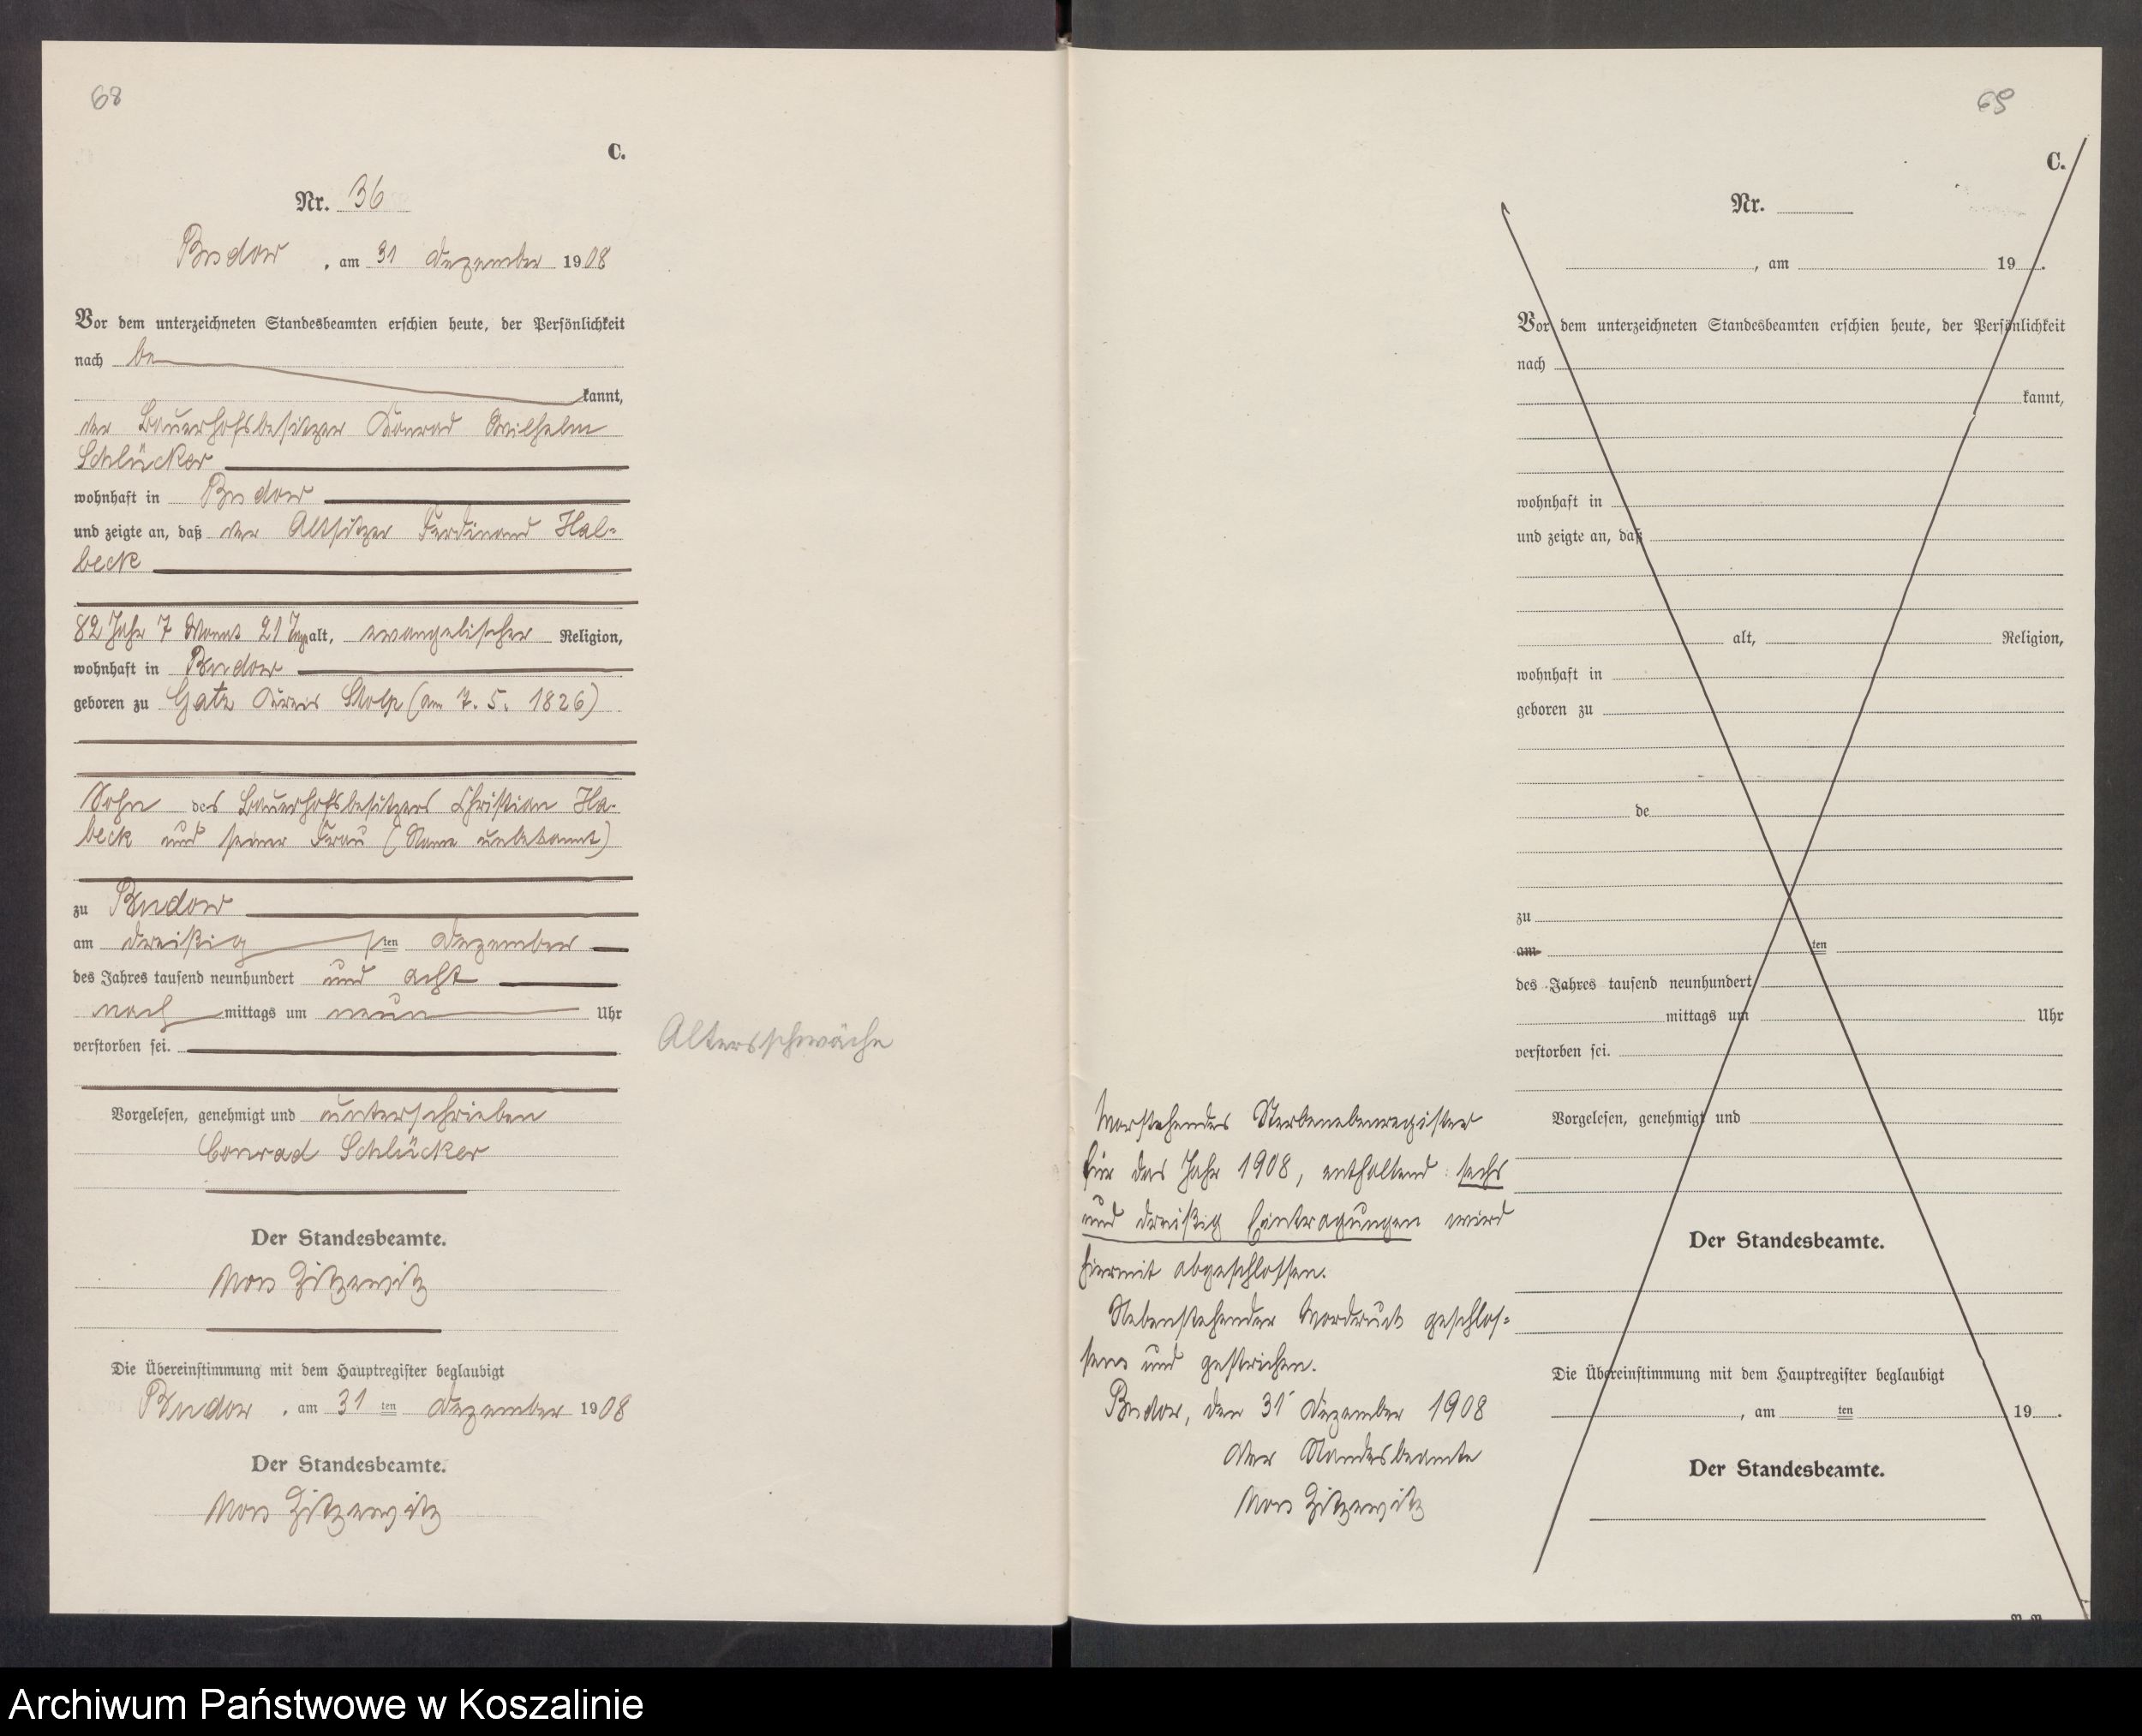 68
C.
Nr. 36
Budow, am 31 Dezember 1908
Vor dem unterzeichneten Standesbeamten erschien heute, der Persönlichkeit
nach be
kannt,
der Bauerhofsbesitzer Konrad Wilhelm
Schlücker
wohnhaft in Budow
und zeigte an, daß der Altsitzer Ferdinand Hal-
beck
82 Jahr 7 Monat 21 Tage alt, evangelischer Religion,
wohnhaft in Budow
geboren zu Gatz Kreis Stolp (am 7. 5. 1826)
Sohn des Bauerhofsbesitzers Christian Ha-
beck und seiner Frau (Name unbekannt)
zu Budow
am dreißigsten Dezember
des Jahres tausend neunhundert und acht
nach mittags um neun Uhr
verstorben sei.
Altersschwäche
Vorgelesen, genehmigt und unterschrieben
Conrad Schlücker
Der Standesbeamte.
Von Zitzewitz
Die Übereinstimmung mit dem Hauptregister beglaubigt
Budow, am 31 ten Dezember 1908
Der Standesbeamte.
Von Zitzewitz
69
C.
Nr.
, am 19 .
Vor dem unterzeichneten Standesbeamten erschien heute, der Persönlichkeit
nach
kannt,
wohnhaft in
und zeigte an, daß
alt, Religion,
wohnhaft in
geboren zu
de
zu
am ten
des Jahres tausend neunhundert
mittags um Uhr
verstorben sei.
Vorgelesen, genehmigt und
Der Standesbeamte.
Die Übereinstimmung mit dem Hauptregister beglaubigt
, am ten 19 .
Der Standesbeamte.
Vorstehendes Sterbenebenregister
für das Jahr 1908, enthaltend sechs
und dreißig Eintragungen wird
hiermit abgeschlossen.
Nebenstehender Vordruck geschlos-
sen und gestrichen.
Budow, den 31 Dezember 1908
Der Standesbeamte
Von Zitzewitz
Archiwum Państwowe w Koszalinie